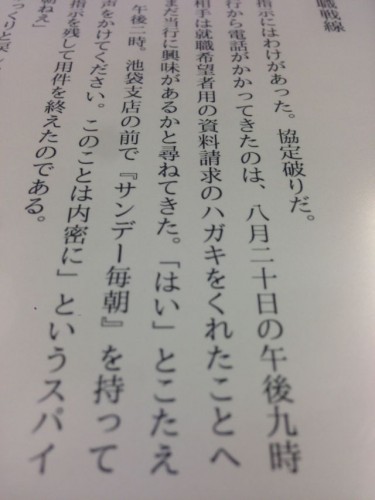 職戦線
指示にはわけがあった。協定破りだ。
行から電話がかかってきたのは、八月二十日の午後九時
相手は就職希望者用の資料請求のハガキをくれたことへ
まだ当行に興味があるかと尋ねてきた。「はい」とこたえ
午後二時。池袋支店の前で『サンデー毎朝』を持って
声をかけてください。このことは内密に」というスパイ
指示を残して用件を終えたのである。
朝ねえ」
っくりと戻し